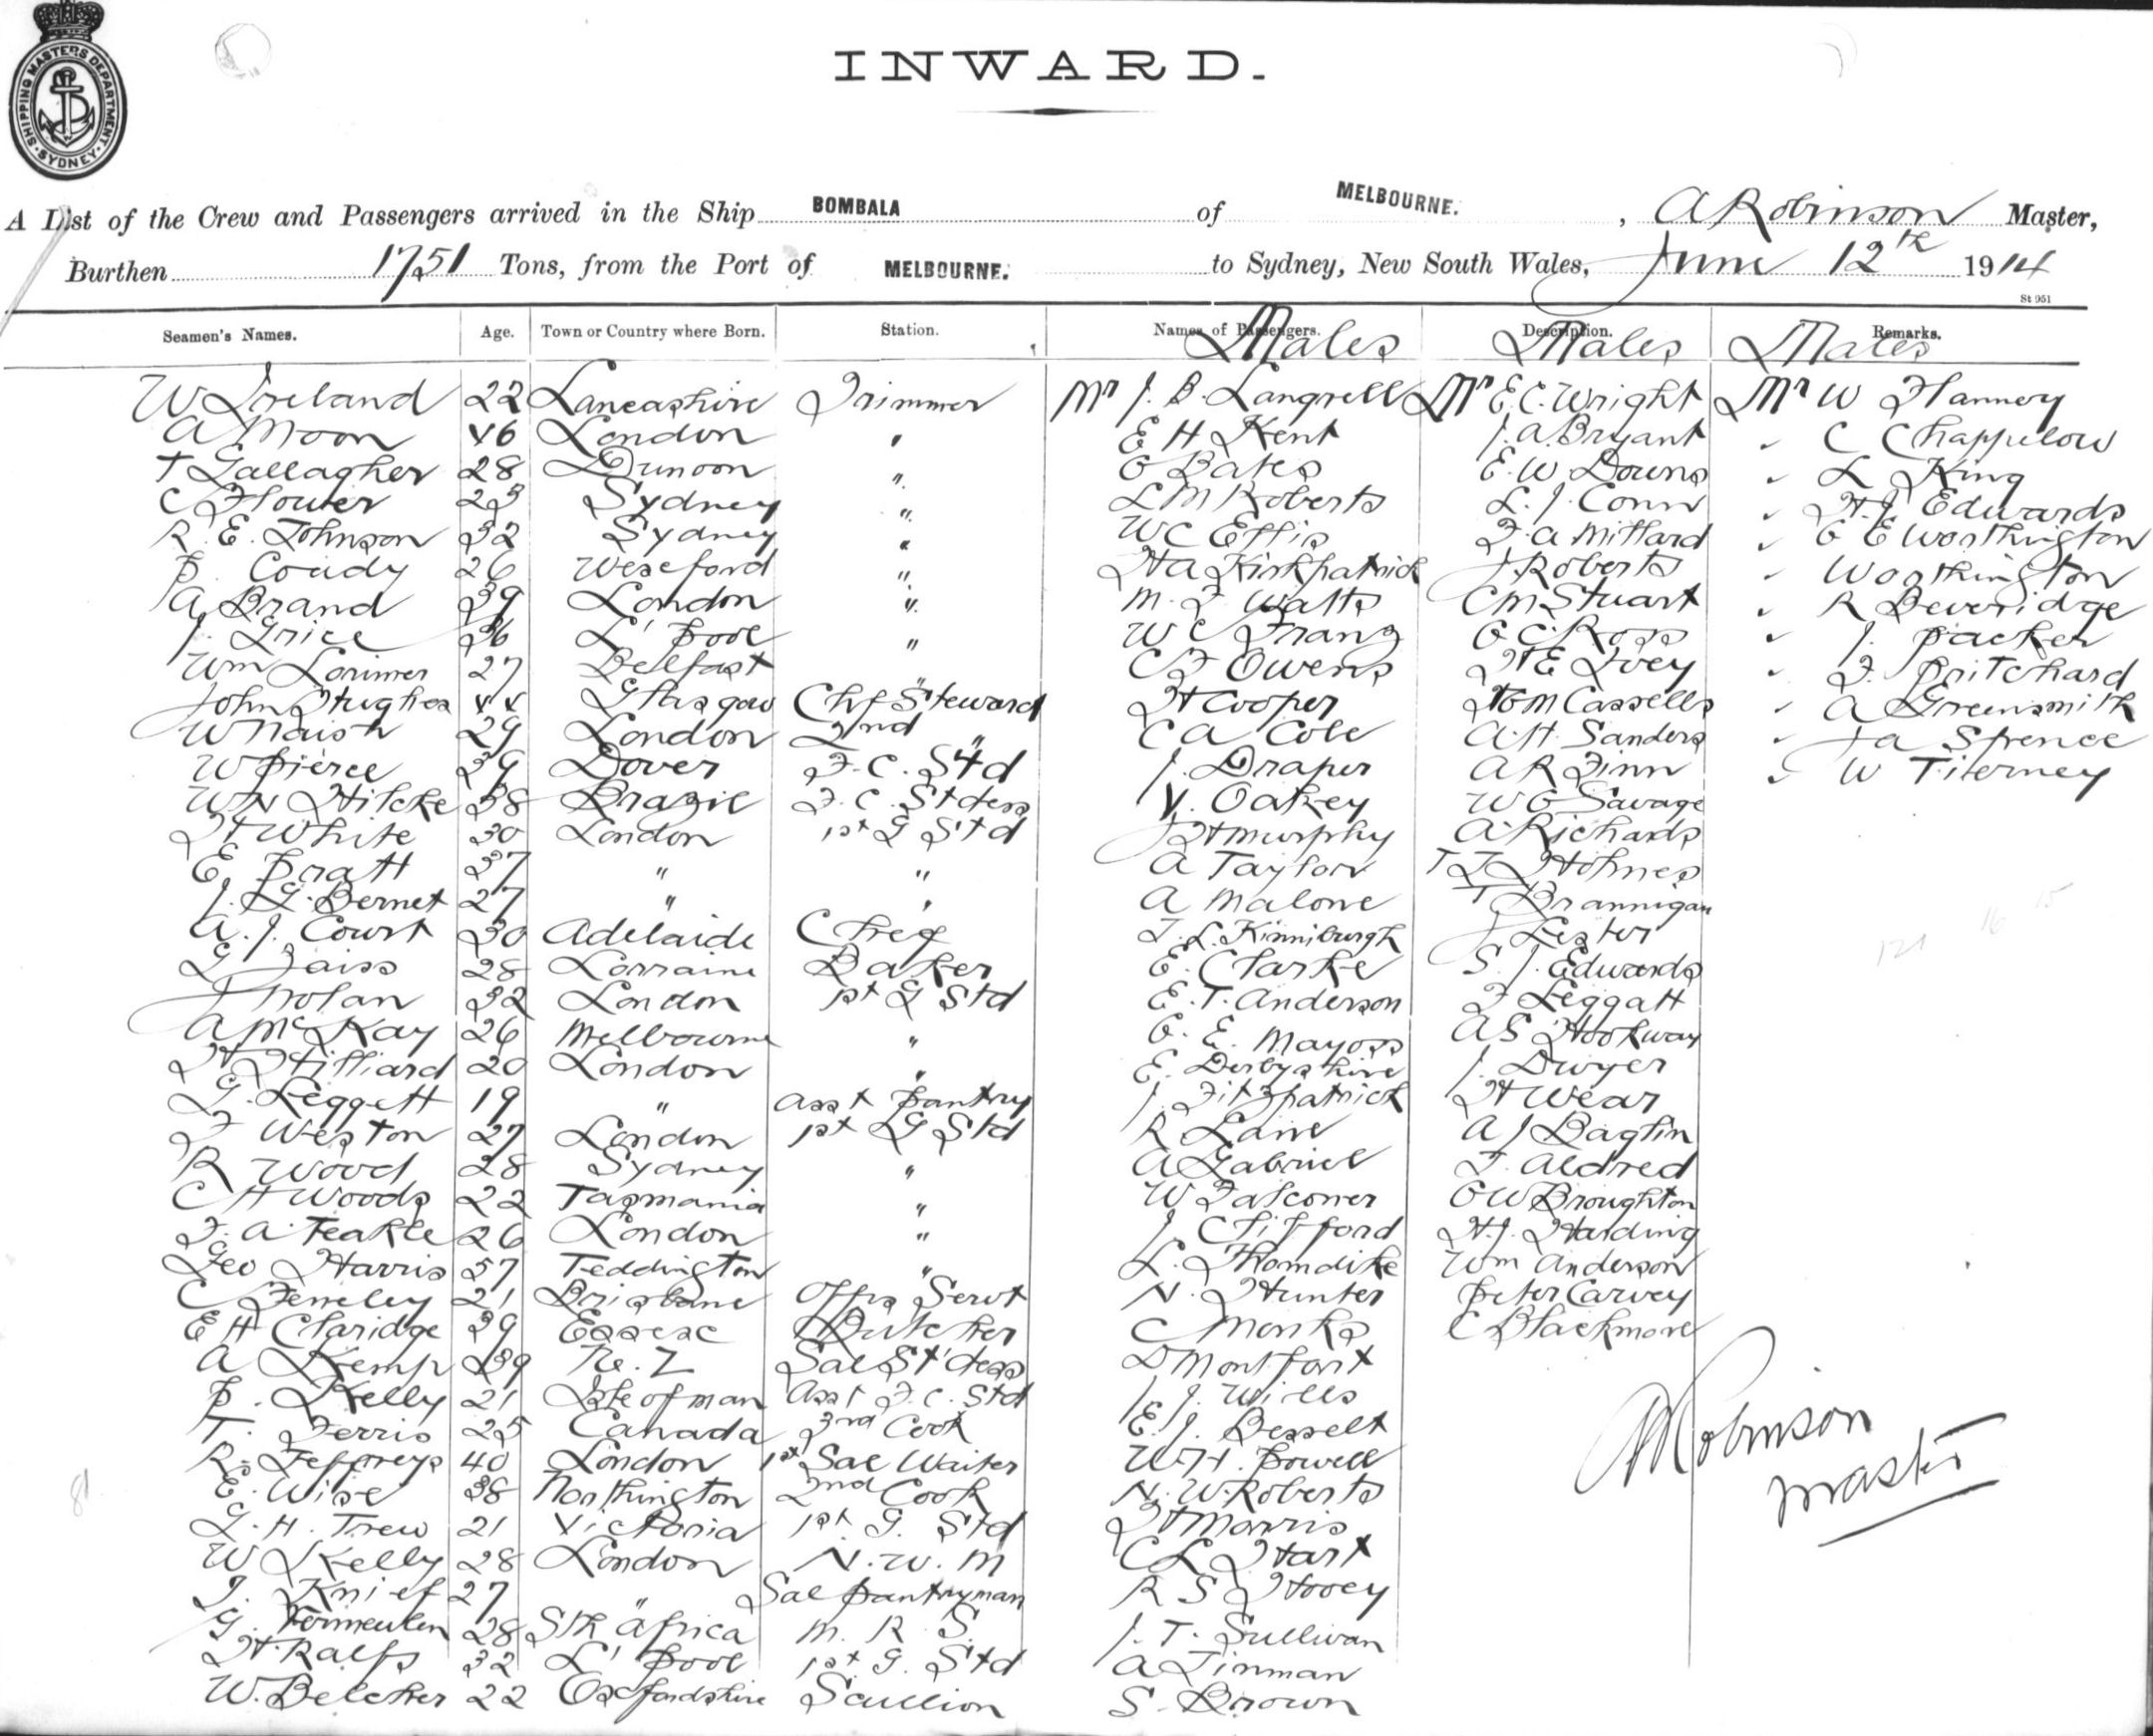 SHIPPING MASTERS DEPARTMENT · SYDNEY ·
INWARD.
A List of the Crew and Passengers arrived in the Ship BOMBALA of MELBOURNE. , A Robinson Master,
Burthen 1751 Tons, from the Port of MELBOURNE. to Sydney, New South Wales, June 12th 1914
St 951
Seamen's Names. Age. Town or Country where Born. Station. Names of Passengers. Description. Remarks.
Males Males Males
W Ireland 22 Lancashire Trimmer Mr J. B. Langrell Mr E. C. Wright Mr W Flannery
A Moon 46 London " E H Kent J. A. Bryant " C Chappelow
T Gallagher 28 Dunoon " G Bates E. W Downs " L King
C Flower 23 Sydney " L M Roberts L. J. Conn " H. J. Edwards
R. E. Johnson 32 Sydney " W C Ellis F. A Millard " G E Worthington
P. Coady 26 Wexford " H A Kirkpatrick J Roberts " Worthington
A. Brand 39 London " M. F Watts C M Stuart " R Beveridge
J. Grice 36 L'Pool " W C Franz G C. Ross " J. Packer
Wm Lorimer 27 Belfast " C F Owens H E Ivey " F. Pritchard
John Hughes 44 Glasgow Chf Steward H Cooper M Cassells " A Greensmith
W Naish 29 London 2nd " C A Cole A. H. Sanders " J A Spence
W Pierce 39 Dover F. C. Std J. Draper A R Finn " W Tierney
W N Hilcke 38 Brazil F. C. Stdess V. Oakey W G Savage
H White 30 London 1st G Std J H Murphy A. Richards
E. Pratt 37 " " A Taylor T J Holmes
J. G. Bernet 27 " " A Malone T Brannigan
A. J. Court 30 Adelaide Chef T. L. Kinniburgh J Lester
G Zaiss 28 Lorraine Baker E. Clarke S. J. Edwards
J Nolan 32 London 1st G Std E. T. Anderson F Leggatt
A McKay 26 Melbourne " G. E. Mayoss A S Hookway
H Hilliard 20 London " E. Derbyshire J. Dwyer
G. Leggett 19 " Asst Pantry J. Fitzpatrick H Wear
F Weston 27 London 1st G Std R Lane A J Baglin
R Wood 28 Sydney " A Gabriel F. Aldred
C H Woods 22 Tasmania " W Falconer G W Broughton
F. A. Teakle 26 London " J. Clifford H. J. Harding
Geo Harris 57 Teddington " L. Thorndike Wm Anderson
C Femeley 21 Brisbane Offrs Servt N. Hunter Peter Carvey
E H Claridge 29 Essex Butcher C Monks C Blackmore
A Kemp 39 N. Z Sal St'dess D Montfort
P. Kelly 21 Isle of man Asst F. C. Std J. Wills
T. Ferris 25 Canada 3rd Cook E. J. Besselt
R. Jeffreys 40 London 1st Sal Waiter W. H. Powell
E. Wise 38 Northington 2nd Cook N. W. Roberts
G. H. Trew 21 Victoria 1st G. Std H Morris
W Kelly 28 London N. W. M C L Hart
J. Knief 27 " Sal Pantryman R S Hooey
G. Vermeulen 28 Sth Africa M. R. S. J. T. Sullivan
H. Ralfs 32 L'Pool 1st G. Std A Linman
W. Belcher 22 Oxfordshire Scullion S. Brown
A Robinson
Master